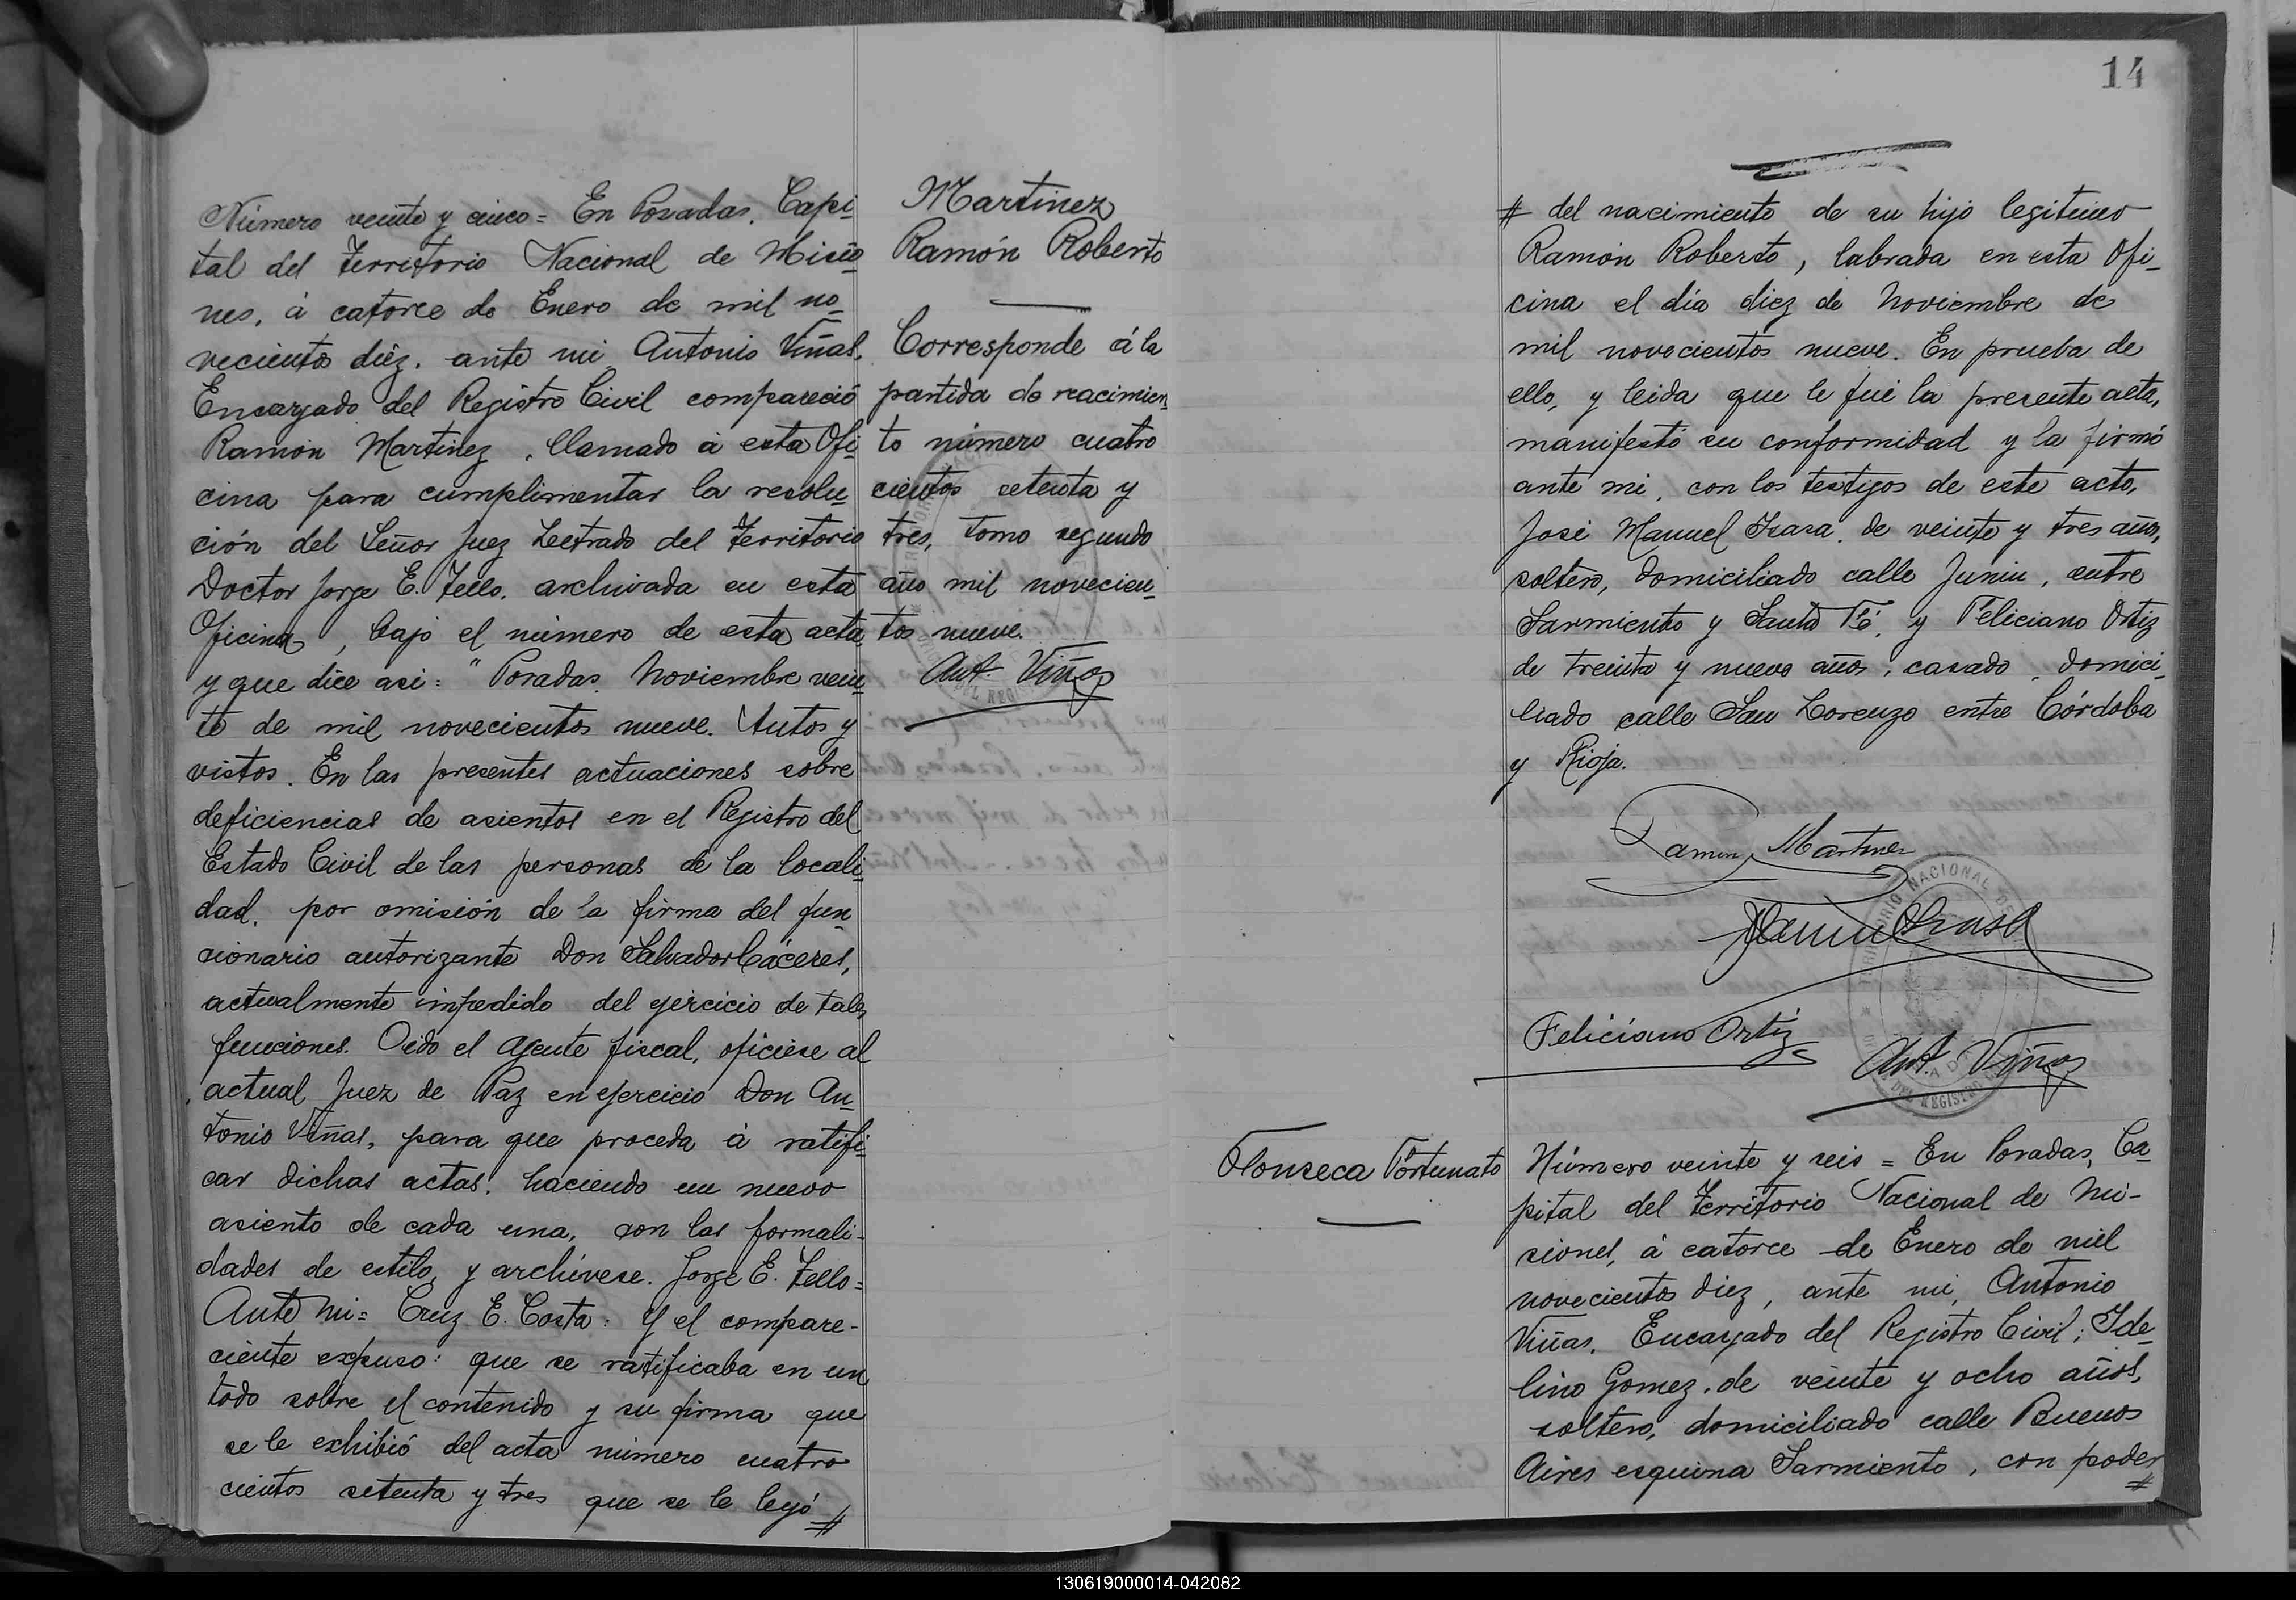 Número veinte y cinco = En Posadas, Capi-
tal del Territorio Nacional de Misio-
nes, á catorce de Enero de mil no-
vecientos diéz. ante mi Antonio Viñas,
Encargado del Registro Civil compareció
Ramón Martinez, llamado á esta Ofi-
cina para cumplimentar la resolu-
ción del Señor Juez Letrado del Territorio
Doctor Jorge E. Tello. archivada en esta
Oficina, bajo el número de esta acta
y que dice asi: " Posadas Noviembre vein-
te de mil novecientos nueve. Autos y
vistos. En las presentes actuaciones sobre
deficiencias de asientos en el Registro del
Estado Civil de las personas de la locali-
dad, por omisión de la firma del fun-
cionario autorizante Don Salvador Cáceres,
actualmente impedido del ejercicio de tales
funciones. Oido el Agente fiscal, oficiese al
actual Juez de Paz en ejercicio Don An-
tonio Viñas, para que proceda á ratifi-
car dichas actas, haciendo un nuevo
asiento de cada una, con las formali-
dades de estilo, y archivese. Jorge E. Tello=
Ante mi= Cruz E. Costa: Y el compare-
ciente expuso: que se ratificaba en un
todo sobre el contenido y su firma que
se le exhibió del acta número cuatro
cientos setenta y tres que se le leyó #
Martinez
Ramón Roberto
Corresponde á la
partida de nacimien-
to número cuatro
cientos setenta y
tres, tomo segundo
año mil novecien-
tos nueve.
Ant. Viñas
14
# del nacimiento de su hijo legitimo
Ramón Roberto, labrada en esta Ofi-
cina el día diez de Noviembre de
mil novecientos nueve. En prueba de
ello, y leida que le fué la presente acta,
manifestó su conformidad y la firmó
ante mi, con los testigos de este acto,
José Manuel Isasa, de veinte y tres años,
soltero, domiciliado calle Junin, entre
Sarmiento y Santa Fé, y Feliciano Ortiz
de treinta y nueve años, casado, domici-
liado calle San Lorenzo entre Córdoba
y Rioja.
Ramon Martinez
Feliciano Ortiz
Ant. Viñas
Fonseca Fortunato
Número veinte y seis = En Posadas, Ca-
pital del Territorio Nacional de Mi-
siones, á catorce de Enero de mil
novecientos diez, ante mi, Antonio
Viñas, Encargado del Registro Civil; Ide-
lino Gomez, de veinte y ocho años,
soltero, domiciliado calle Buenos
Aires esquina Sarmiento, con poder
#
130619000014-042082